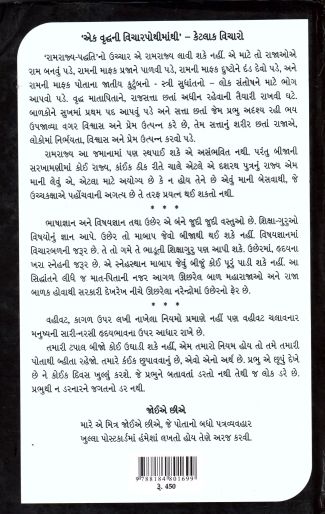 'એક વૃદ્ધની વિચારપોથીમાંથી' – કેટલાક વિચારો
'રામરાજ્ય-પદ્ધતિ'નો ઉચ્ચાર એ રામરાજ્ય લાવી શકે નહીં. એ માટે તો રાજાઓએ
રામ બનવું પડે, રામની માફક પ્રજાને પાળવી પડે, રામની માફક દુષ્ટોને દંડ દેવો પડે, અને
રામની માફક પોતાના જાતીય કુટુંબનો - સ્ત્રી સુધાંતનો – લોક સંતોષને માટે ભોગ
આપવો પડે. વૃદ્ધ માતાપિતાને, રાજસત્તા છતાં અધીન રહેવાની તૈયારી રાખવી ઘટે.
બાળકોને સુખમાં પ્રથમ પદ આપવું પડે અને સત્તા છતાં જેમ પ્રભુ અદૃશ્ય રહી ભય
ઉપજાવ્યા વગર વિશ્વાસ અને પ્રેમ ઉત્પન્ન કરે છે, તેમ સત્તાનું શરીર છતાં રાજાએ,
લોકોમાં નિર્ભયતા, વિશ્વાસ અને પ્રેમ ઉત્પન્ન કરવો પડે.
રામરાજ્ય આ જમાનામાં પણ સ્થપાઈ શકે એ અસંભવિત નથી. પરંતુ બીજાની
સરખામણીમાં કોઈ રાજ્ય, કાંઈક ઠીક રીતે ચાલે એટલે એ દશરથ પુત્રનું રાજ્ય એમ
માની લેવું એ, એટલા માટે અયોગ્ય છે કે ન હોય તેને છે એવું માની બેસવાથી, જે
ઉચ્ચકક્ષાએ પહોંચવાની અગત્ય છે તે તરફ પ્રયત્ન થઈ શકતો નથી.
* * *
ભાષાજ્ઞાન અને વિષયજ્ઞાન તથા ઉછેર એ બંને જુદી જુદી વસ્તુઓ છે. શિક્ષા-ગુરુઓ
વિષયોનું જ્ઞાન આપે. ઉછેર તો માબાપ જેવો બીજાથી થઈ શકે નહીં. વિષયજ્ઞાનમાં
વિચારબળની જરૂર છે. તે તો ગમે તે ભાડૂતી શિક્ષાગુરુ પણ આપી શકે. ઉછેરમાં, હૃદયના
ખરા સ્નેહની જરૂર છે. એ સ્નેહસ્થાન માબાપ જેવું બીજું કોઈ પૂરું પાડી શકે નહીં. આ
સિદ્ધાંતને લીધે જ માત-પિતાની નજર આગળ ઊછરેલ બાળ મહારાજાઓ અને રાજા
બાળક હોવાથી સરકારી દેખરેખ નીચે ઊછરેલા નરેન્દ્રોમાં ઉછેરનો ફેર છે.
* * *
વહીવટ, કાગળ ઉપર લખી નાખેલા નિયમો પ્રમાણે નહીં પણ વહીવટ ચલાવનાર
મનુષ્યની સારી-નરસી હૃદયભાવના ઉપર આધાર રાખે છે.
તમારી ટપાલ બીજો કોઈ ઉઘાડી શકે નહીં, એમ તમારો નિયમ હોય તો તમે તમારી
પોતાથી બ્હીતા રહેજો. તમારે કંઈક છુપાવવાનું છે, એવો એનો અર્થ છે. પ્રભુ એ છૂપું દેખે
છે ને કોઈક દિવસ ખુલ્લું કરશે. જે પ્રભુને બતાવતાં ડરતો નથી તેથી જ લોક ડરે છે.
પ્રભુથી ન ડરનારને જગતનો ડર નથી.
જોઈએ છીએ
મારે એ મિત્ર જોઈએ છીએ, જે પોતાનો બધો પત્રવ્યવહાર
ખુલ્લા પોસ્ટકાર્ડમાં હંમેશાં લખતો હોય તેણે અરજ કરવી.
9 788184 801699
રૂ. 450